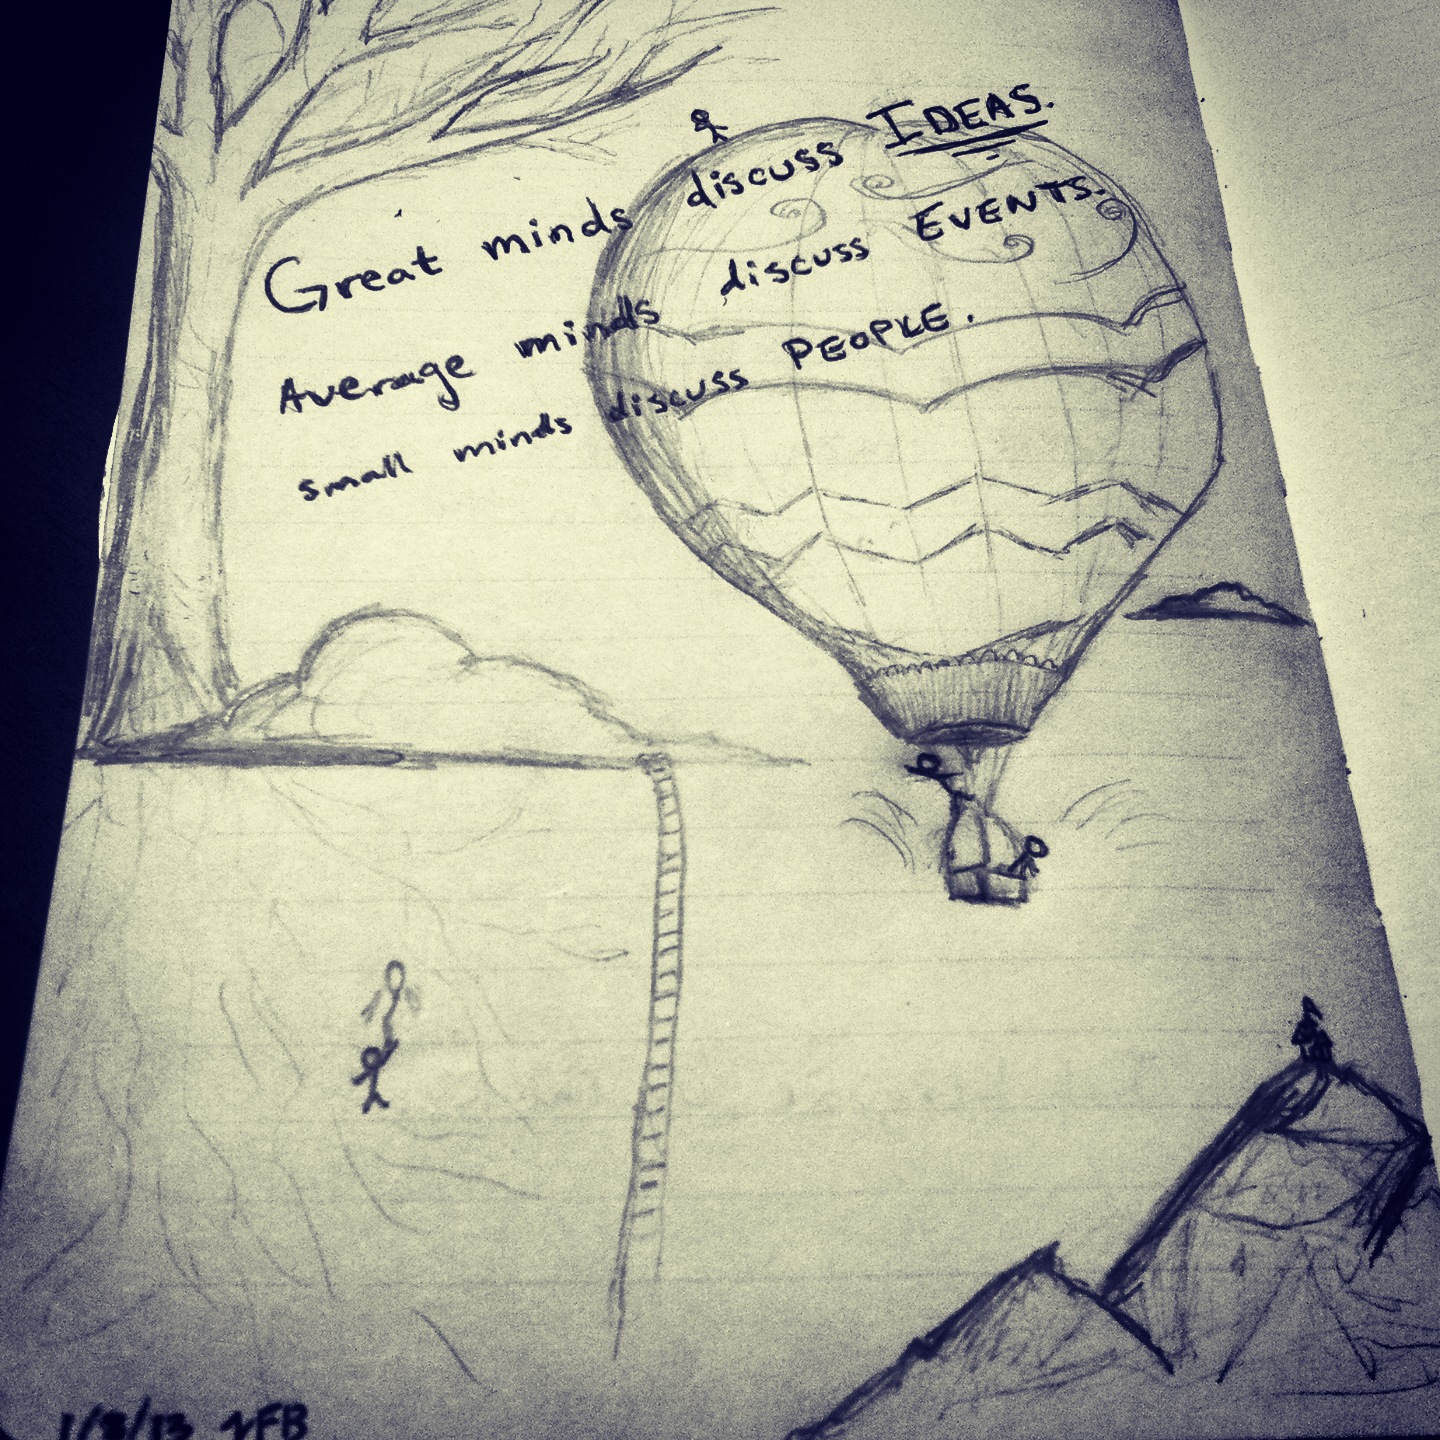 Great minds discuss IDEAS.
Average minds discuss EVENTS.
small minds discuss PEOPLE.
1/8/13